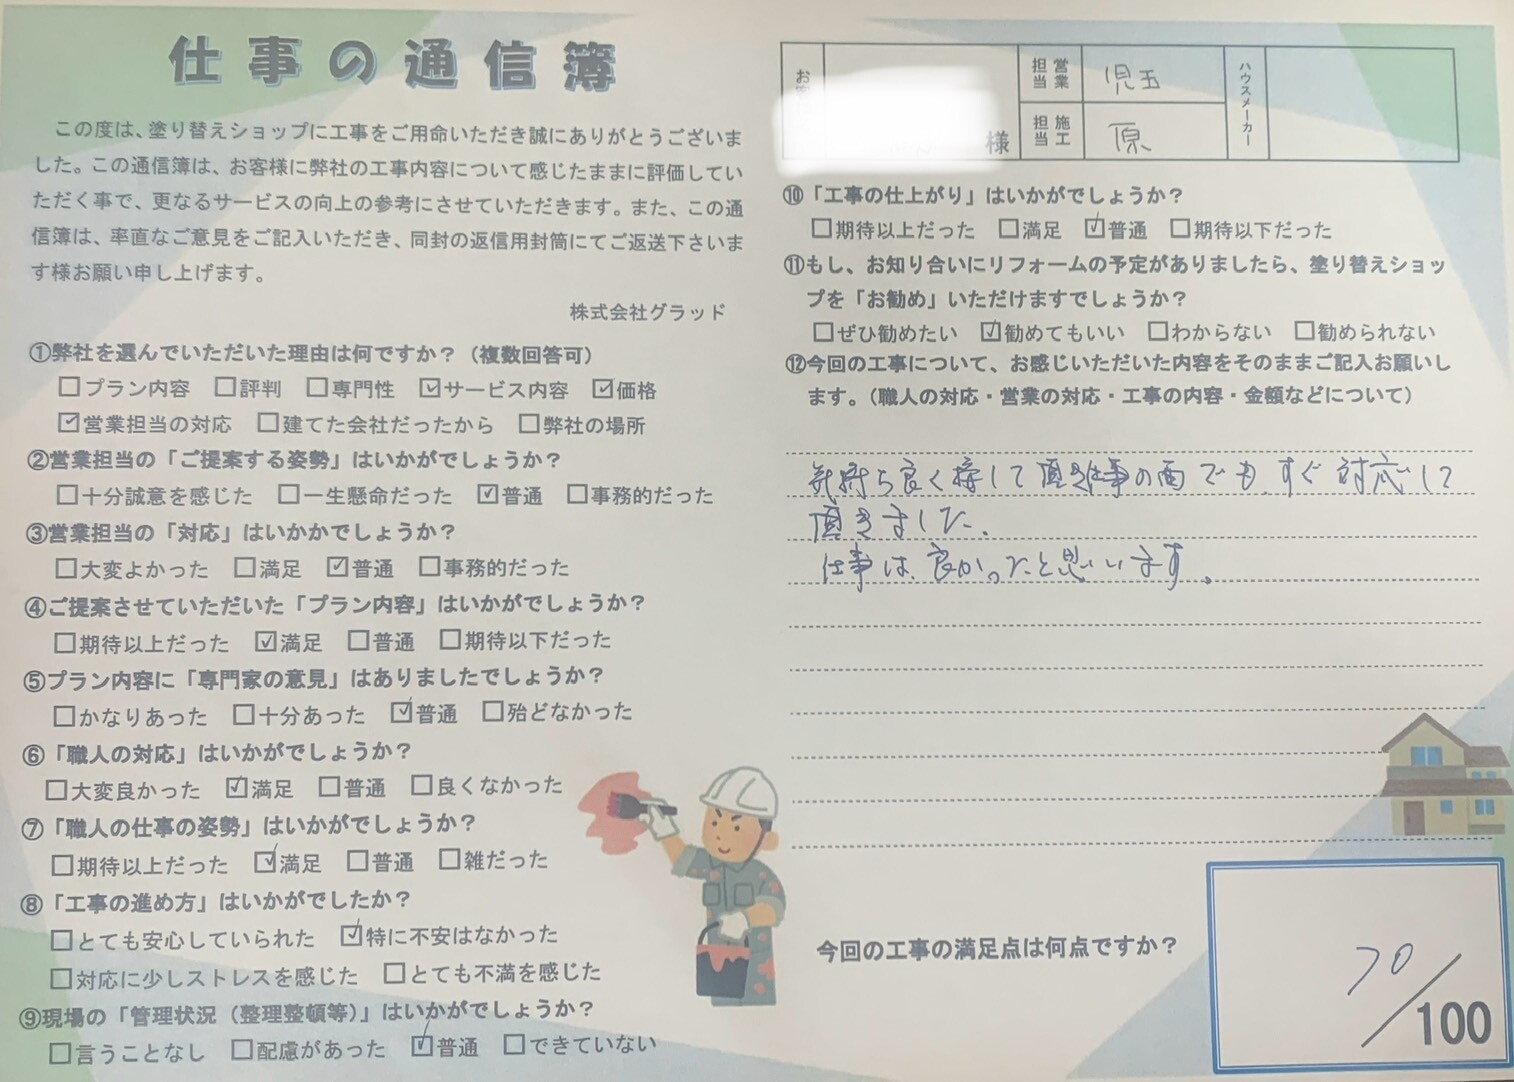 仕事の通信簿
この度は、塗り替えショップに工事をご用命いただき誠にありがとうございま
した。この通信簿は、お客様に弊社の工事内容について感じたままに評価してい
ただく事で、更なるサービスの向上の参考にさせていただきます。また、この通
信簿は、率直なご意見をご記入いただき、同封の返信用封筒にてご返送下さいま
す様お願い申し上げます。
株式会社グラッド
①弊社を選んでいただいた理由は何ですか？（複数回答可）
□プラン内容 □評判 □専門性 ☑サービス内容 ☑価格
☑営業担当の対応 □建てた会社だったから □弊社の場所
②営業担当の「ご提案する姿勢」はいかがでしょうか？
□十分誠意を感じた □一生懸命だった ☑普通 □事務的だった
③営業担当の「対応」はいかかでしょうか？
□大変よかった □満足 ☑普通 □事務的だった
④ご提案させていただいた「プラン内容」はいかがでしょうか？
□期待以上だった ☑満足 □普通 □期待以下だった
⑤プラン内容に「専門家の意見」はありましたでしょうか？
□かなりあった □十分あった ☑普通 □殆どなかった
⑥「職人の対応」はいかがでしょうか？
□大変良かった ☑満足 □普通 □良くなかった
⑦「職人の仕事の姿勢」はいかがでしょうか？
□期待以上だった ☑満足 □普通 □雑だった
⑧「工事の進め方」はいかがでしたか？
□とても安心していられた ☑特に不安はなかった
□対応に少しストレスを感じた □とても不満を感じた
⑨現場の「管理状況（整理整頓等）」はいかがでしょうか？
□言うことなし □配慮があった ☑普通 □できていない
様 営業担当 児玉 ハウスメーカー
施工担当 原
⑩「工事の仕上がり」はいかがでしょうか？
□期待以上だった □満足 ☑普通 □期待以下だった
⑪もし、お知り合いにリフォームの予定がありましたら、塗り替えショッ
プを「お勧め」いただけますでしょうか？
□ぜひ勧めたい ☑勧めてもいい □わからない □勧められない
⑫今回の工事について、お感じいただいた内容をそのままご記入お願いし
ます。（職人の対応・営業の対応・工事の内容・金額などについて）
気持ち良く接して頂き仕事の面でも、すぐ対応して
頂きました。
仕事は、良かったと思います。
今回の工事の満足点は何点ですか？
70/100